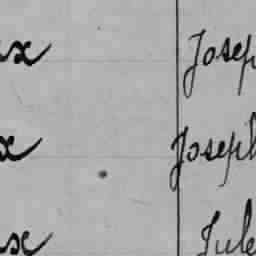 ux Josep
x Joseph
ux Jule